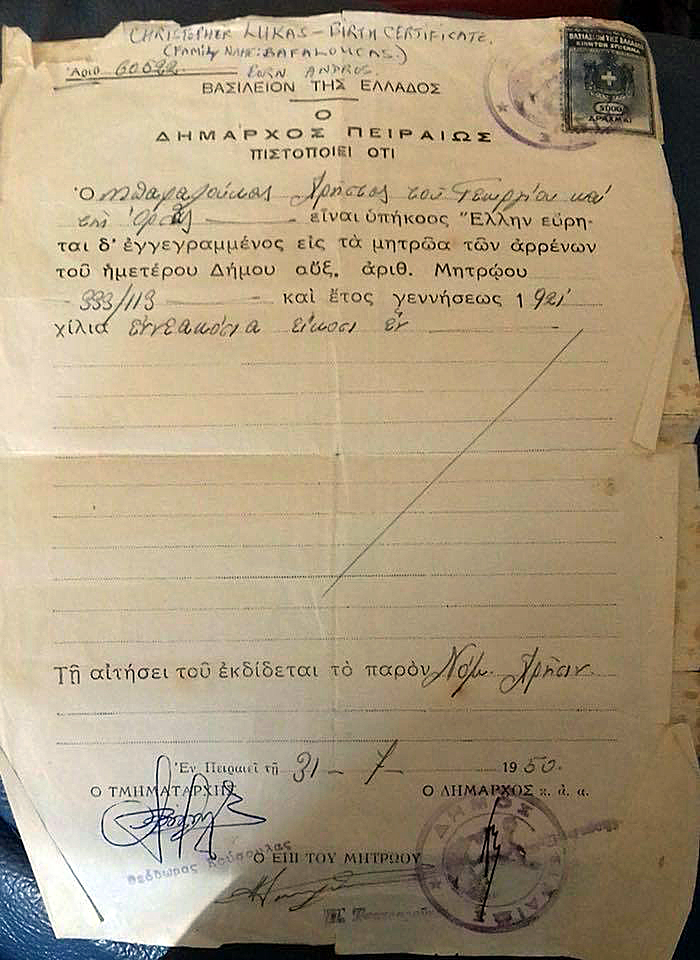 CHRISTOPHER LUKAS - BIRTH CERTIFICATE.
(FAMILY NAME: BAFALOUCAS.)
Ἀριθ. 60522 BORN ANDROS.
ΒΑΣΙΛΕΙΟΝ ΤΗΣ ΕΛΛΑΔΟΣ
5000
ΔΡΑΧΜΑΙ
ΒΑΣΙΛΕΙΟΝ ΤΗΣ ΕΛΛΑΔΟΣ
Ο
ΔΗΜΑΡΧΟΣ ΠΕΙΡΑΙΩΣ
ΠΙΣΤΟΠΟΙΕΙ ΟΤΙ
Ὁ Μπαφαλούκας Χρῆστος τοῦ Γεωργίου καί
τῆς εἶναι ὑπήκοος Ἕλλην εὕρη-
ται δ' ἐγγεγραμμένος εἰς τὰ μητρῶα τῶν ἀρρένων
τοῦ ἡμετέρου Δήμου αὔξ. ἀριθ. Μητρῴου
333/113 καὶ ἔτος γεννήσεως 1921
χίλια ἐννεακόσια εἴκοσι ἕν
Τῇ αἰτήσει τοῦ ἐκδίδεται τὸ παρὸν Νόμ. Χρῆσιν.
Ἐν Πειραιεῖ τῇ 31 - 7 - 1950.
Ο ΤΜΗΜΑΤΑΡΧΗΣ Ο ΔΗΜΑΡΧΟΣ κ. ἀ. ἀ.
Θεόδωρος Κούσουλας
Ο ΕΠΙ ΤΟΥ ΜΗΤΡΩΟΥ